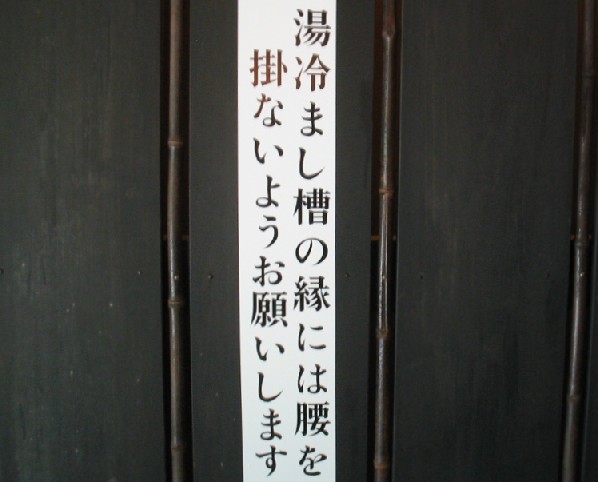 湯冷まし槽の縁には腰を
掛ないようお願いします